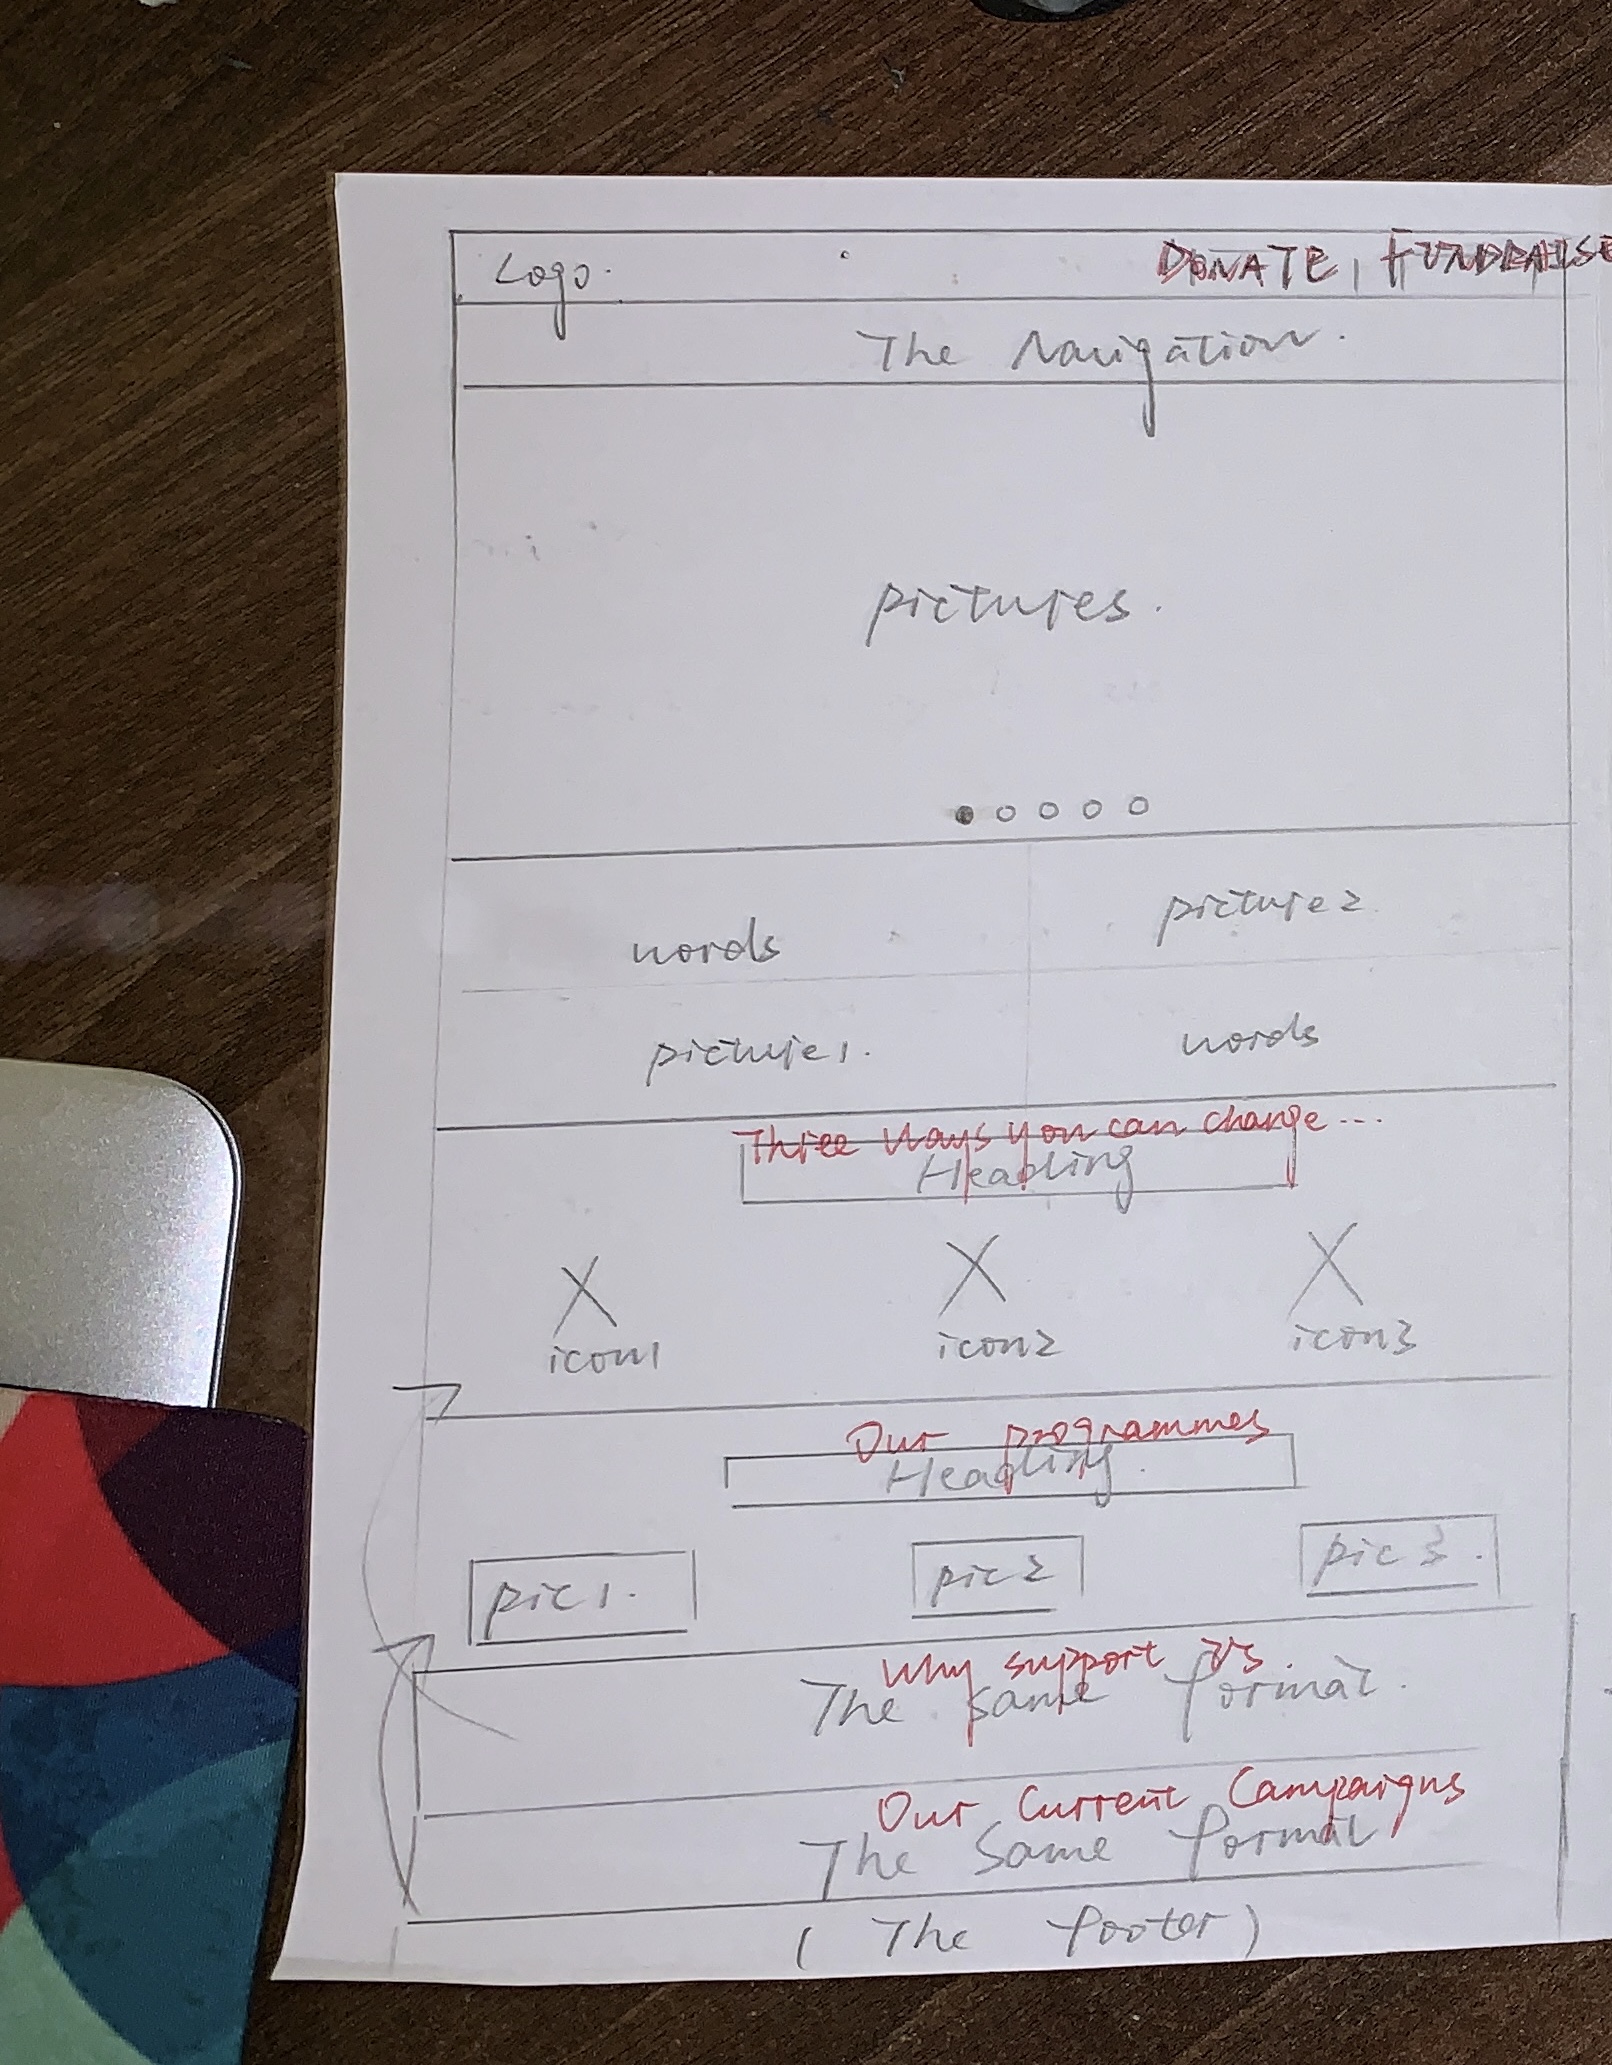 Logo.
DONATE, FUNDRAISE
The Navigation.
pictures.
words
picture2
picture1.
words
Three Ways you can change...
Heading
X X X
icon1 icon2 icon3
Our programmes
Heading.
pic1. pic2 pic3.
Why support us
The same format.
Our Current Campaigns
The Same format
(The footer)